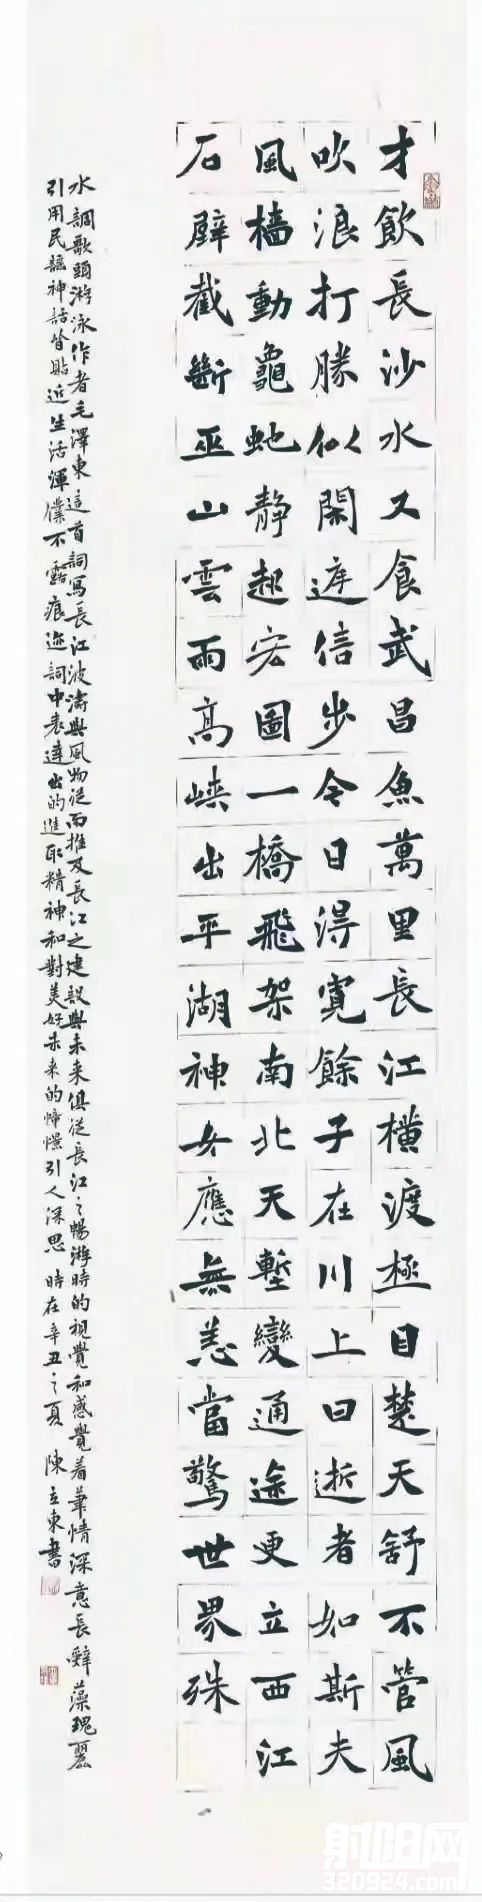 才飲長沙水又食武昌魚萬里長江橫渡極目楚天舒不管風
吹浪打勝似閑庭信步今日得寬餘子在川上曰逝者如斯夫
風檣動龜虵靜起宏圖一橋飛架南北天塹變通途更立西江
石壁截斷巫山雲雨高峽出平湖神女應無恙當驚世界殊
水調歌頭游泳作者毛澤東這首詞寫長江波濤與風物從而推及長江之建設與未来俱從長江之暢游時的視覺和感覺着筆情深意長辭藻瑰麗
引用民謠神話皆貼近生活渾樸不露痕迹詞中表達出的進取精神和對美好未来的憧憬引人深思 時在辛丑之夏 陳立東書
射阳网
320924.com